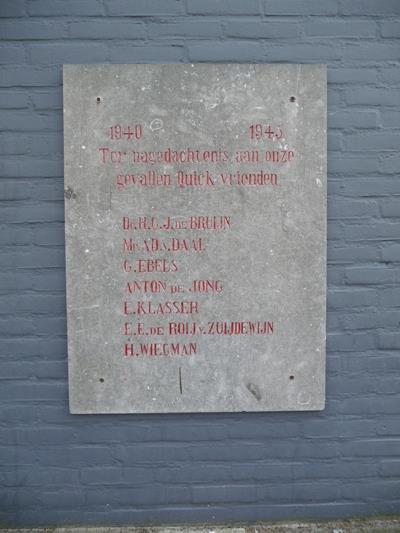 1940 1945
Ter nagedachtenis aan onze
gevallen Quick vrienden.
Dr. H.C.J. DE BRUIJN
Mr. A.D.A. DAAL
G. EBELS
ANTON DE JONG
E. KLASSER
E.E. DE ROIJ v. ZUIJDEWIJN
H. WIEGMAN